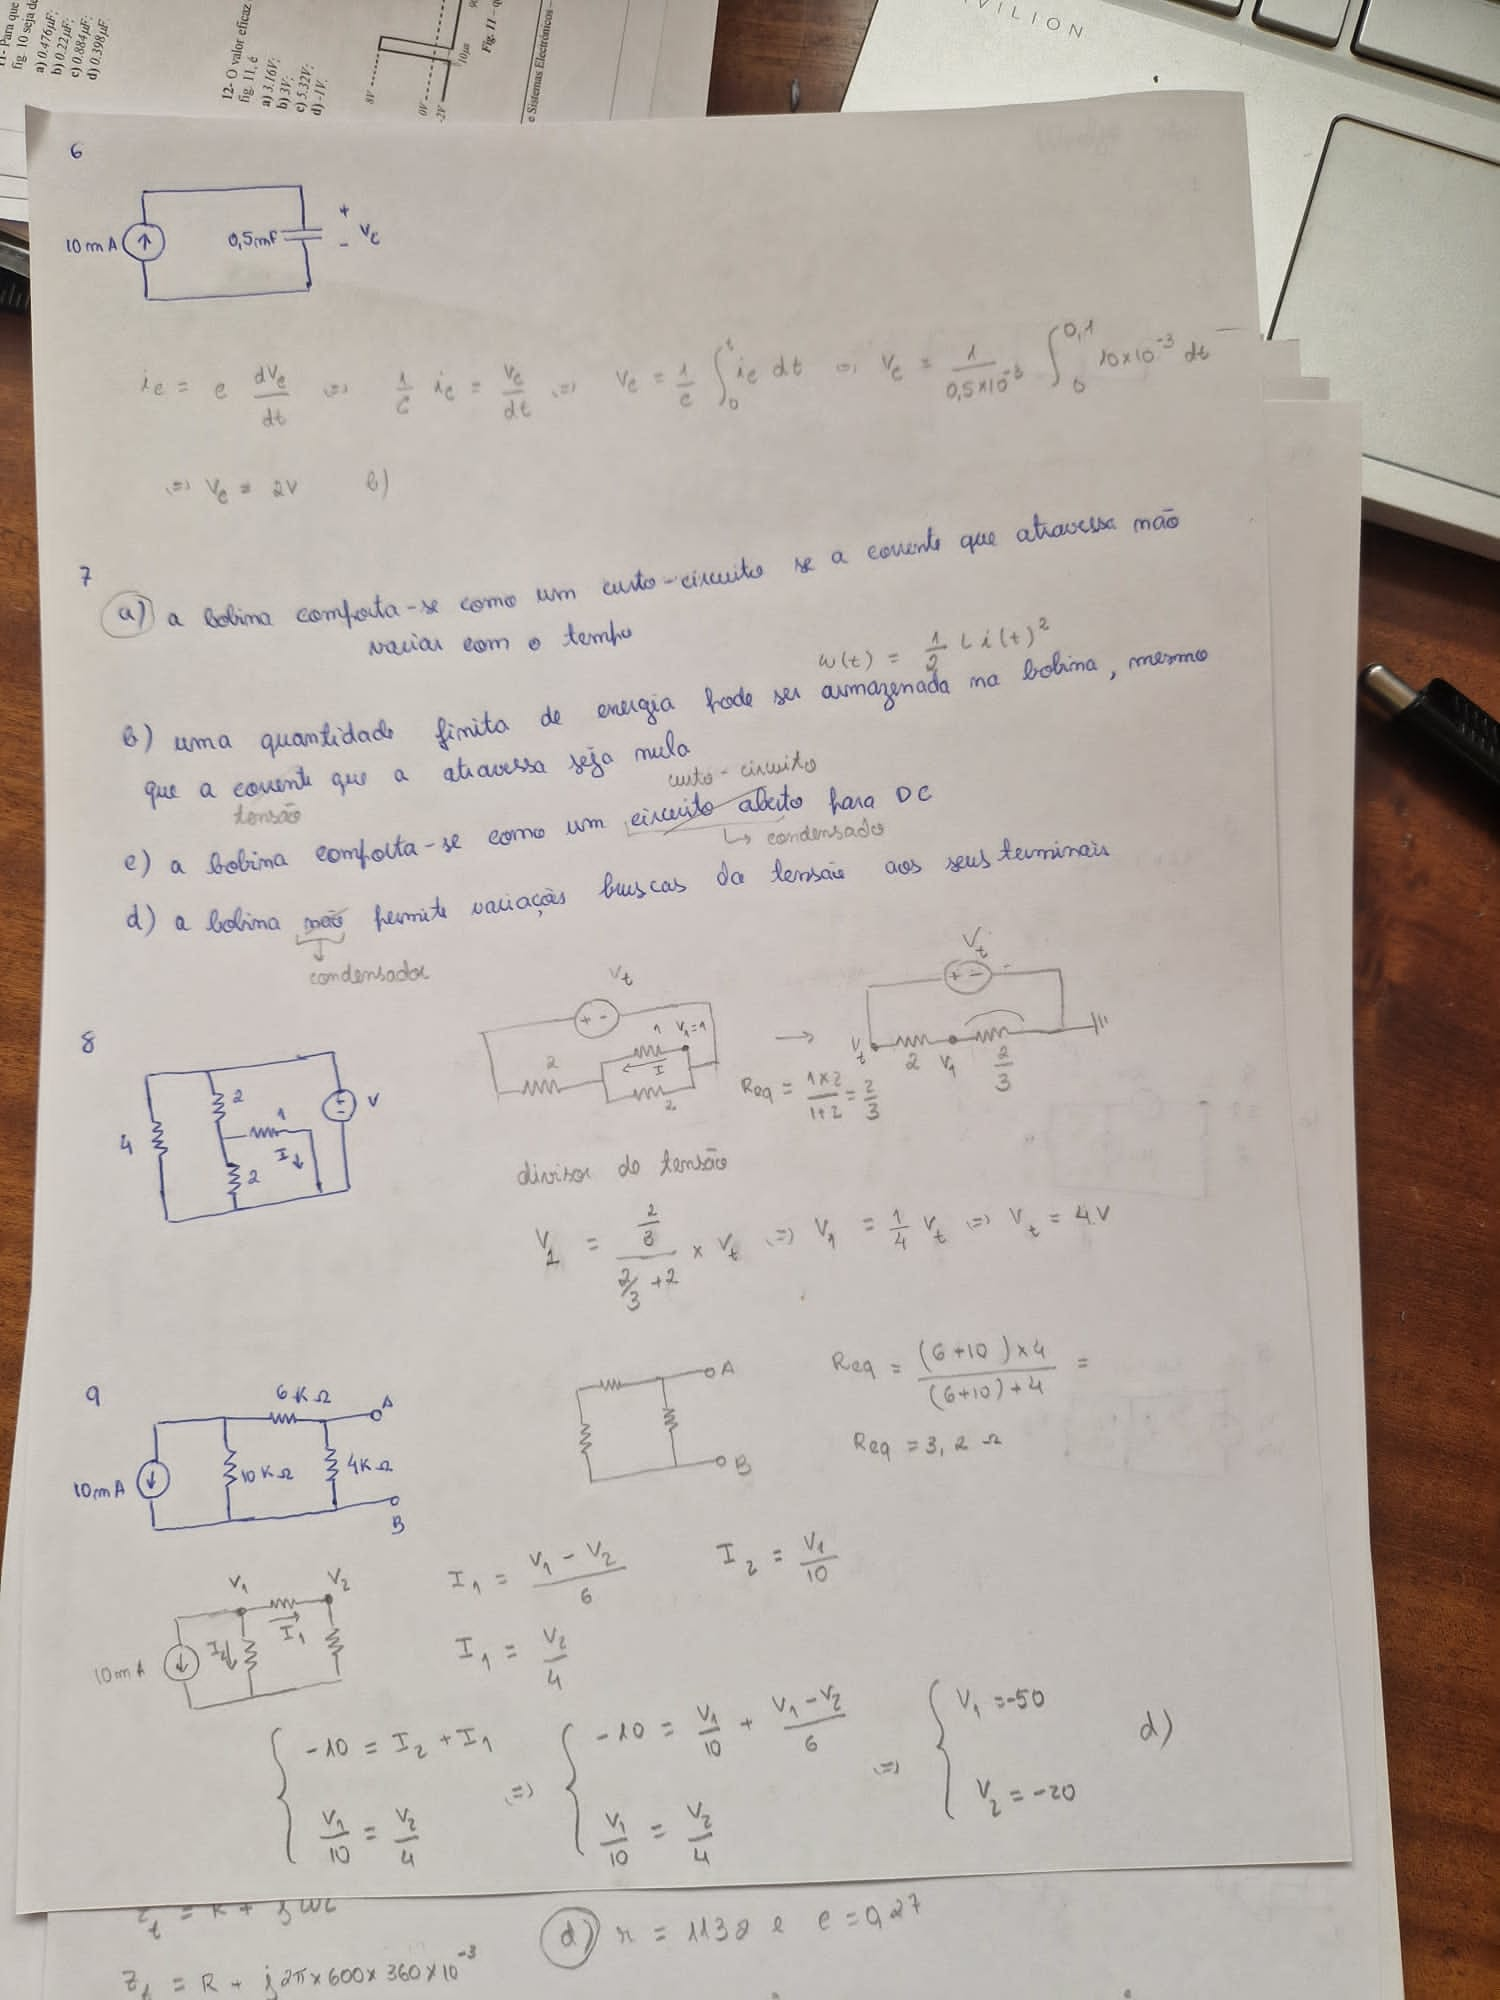 11- Para que
fig. 10 seja de
a) 0.476µF;
b) 0.22µF;
c) 0.884µF;
d) 0.398µF
12- O valor eficaz
fig. 11, é
a) 3.16V;
b) 3V;
c) 5.32V;
d) -1V.
8V
0V
-2V
10µs
Fig. 11 –
e Sistemas Electrónicos –
VILION
6
10mA
0,5mF
+
Vc
-
ic = c dVc/dt <=> 1/c ic = Vc/dt <=> Vc = 1/c ∫₀ᵗ ic dt <=> Vc = 1/(0,5×10⁻³) ∫₀^0,1 10×10⁻³ dt
<=> Vc = 2V b)
7
a) a bobina comporta-se como um curto-circuito se a corrente que atravessa não
variar com o tempo
w(t) = 1/2 L i(t)²
b) uma quantidade finita de energia pode ser armazenada na bobina, mesmo
que a corrente que a atravessa seja nula
tensão
curto-circuito
c) a bobina comporta-se como um circuito aberto para DC
↳ condensado
d) a bobina não permite variações bruscas da tensão aos seus terminais
condensador
8
4
2
1
I ↓
2
+
-
V
Vt
+ -
2
1
V1=1
I
2
→
Vt
+ - -
Vt
2
V1
2/3
Req = (1×2)/(1+2) = 2/3
divisor de tensão
V1 = (2/3)/(2/3 + 2) × Vt <=> V1 = 1/4 Vt <=> Vt = 4V
9
6KΩ
A
10mA
10KΩ
4KΩ
B
A
B
Req = ((6+10)×4)/((6+10)+4) =
Req = 3,2 Ω
V1
V2
I1
I2
10mA
I1 = (V1 - V2)/6
I2 = V1/10
I1 = V2/4
{ -10 = I2 + I1 <=> { -10 = V1/10 + (V1-V2)/6 <=> { V1 = -50 d)
V1/10 = V2/4
V1/10 = V2/4
V2 = -20
Zt = R + j WL
d) r = 1138 e c = 0,27
Zt = R + j2π×600×360×10⁻³